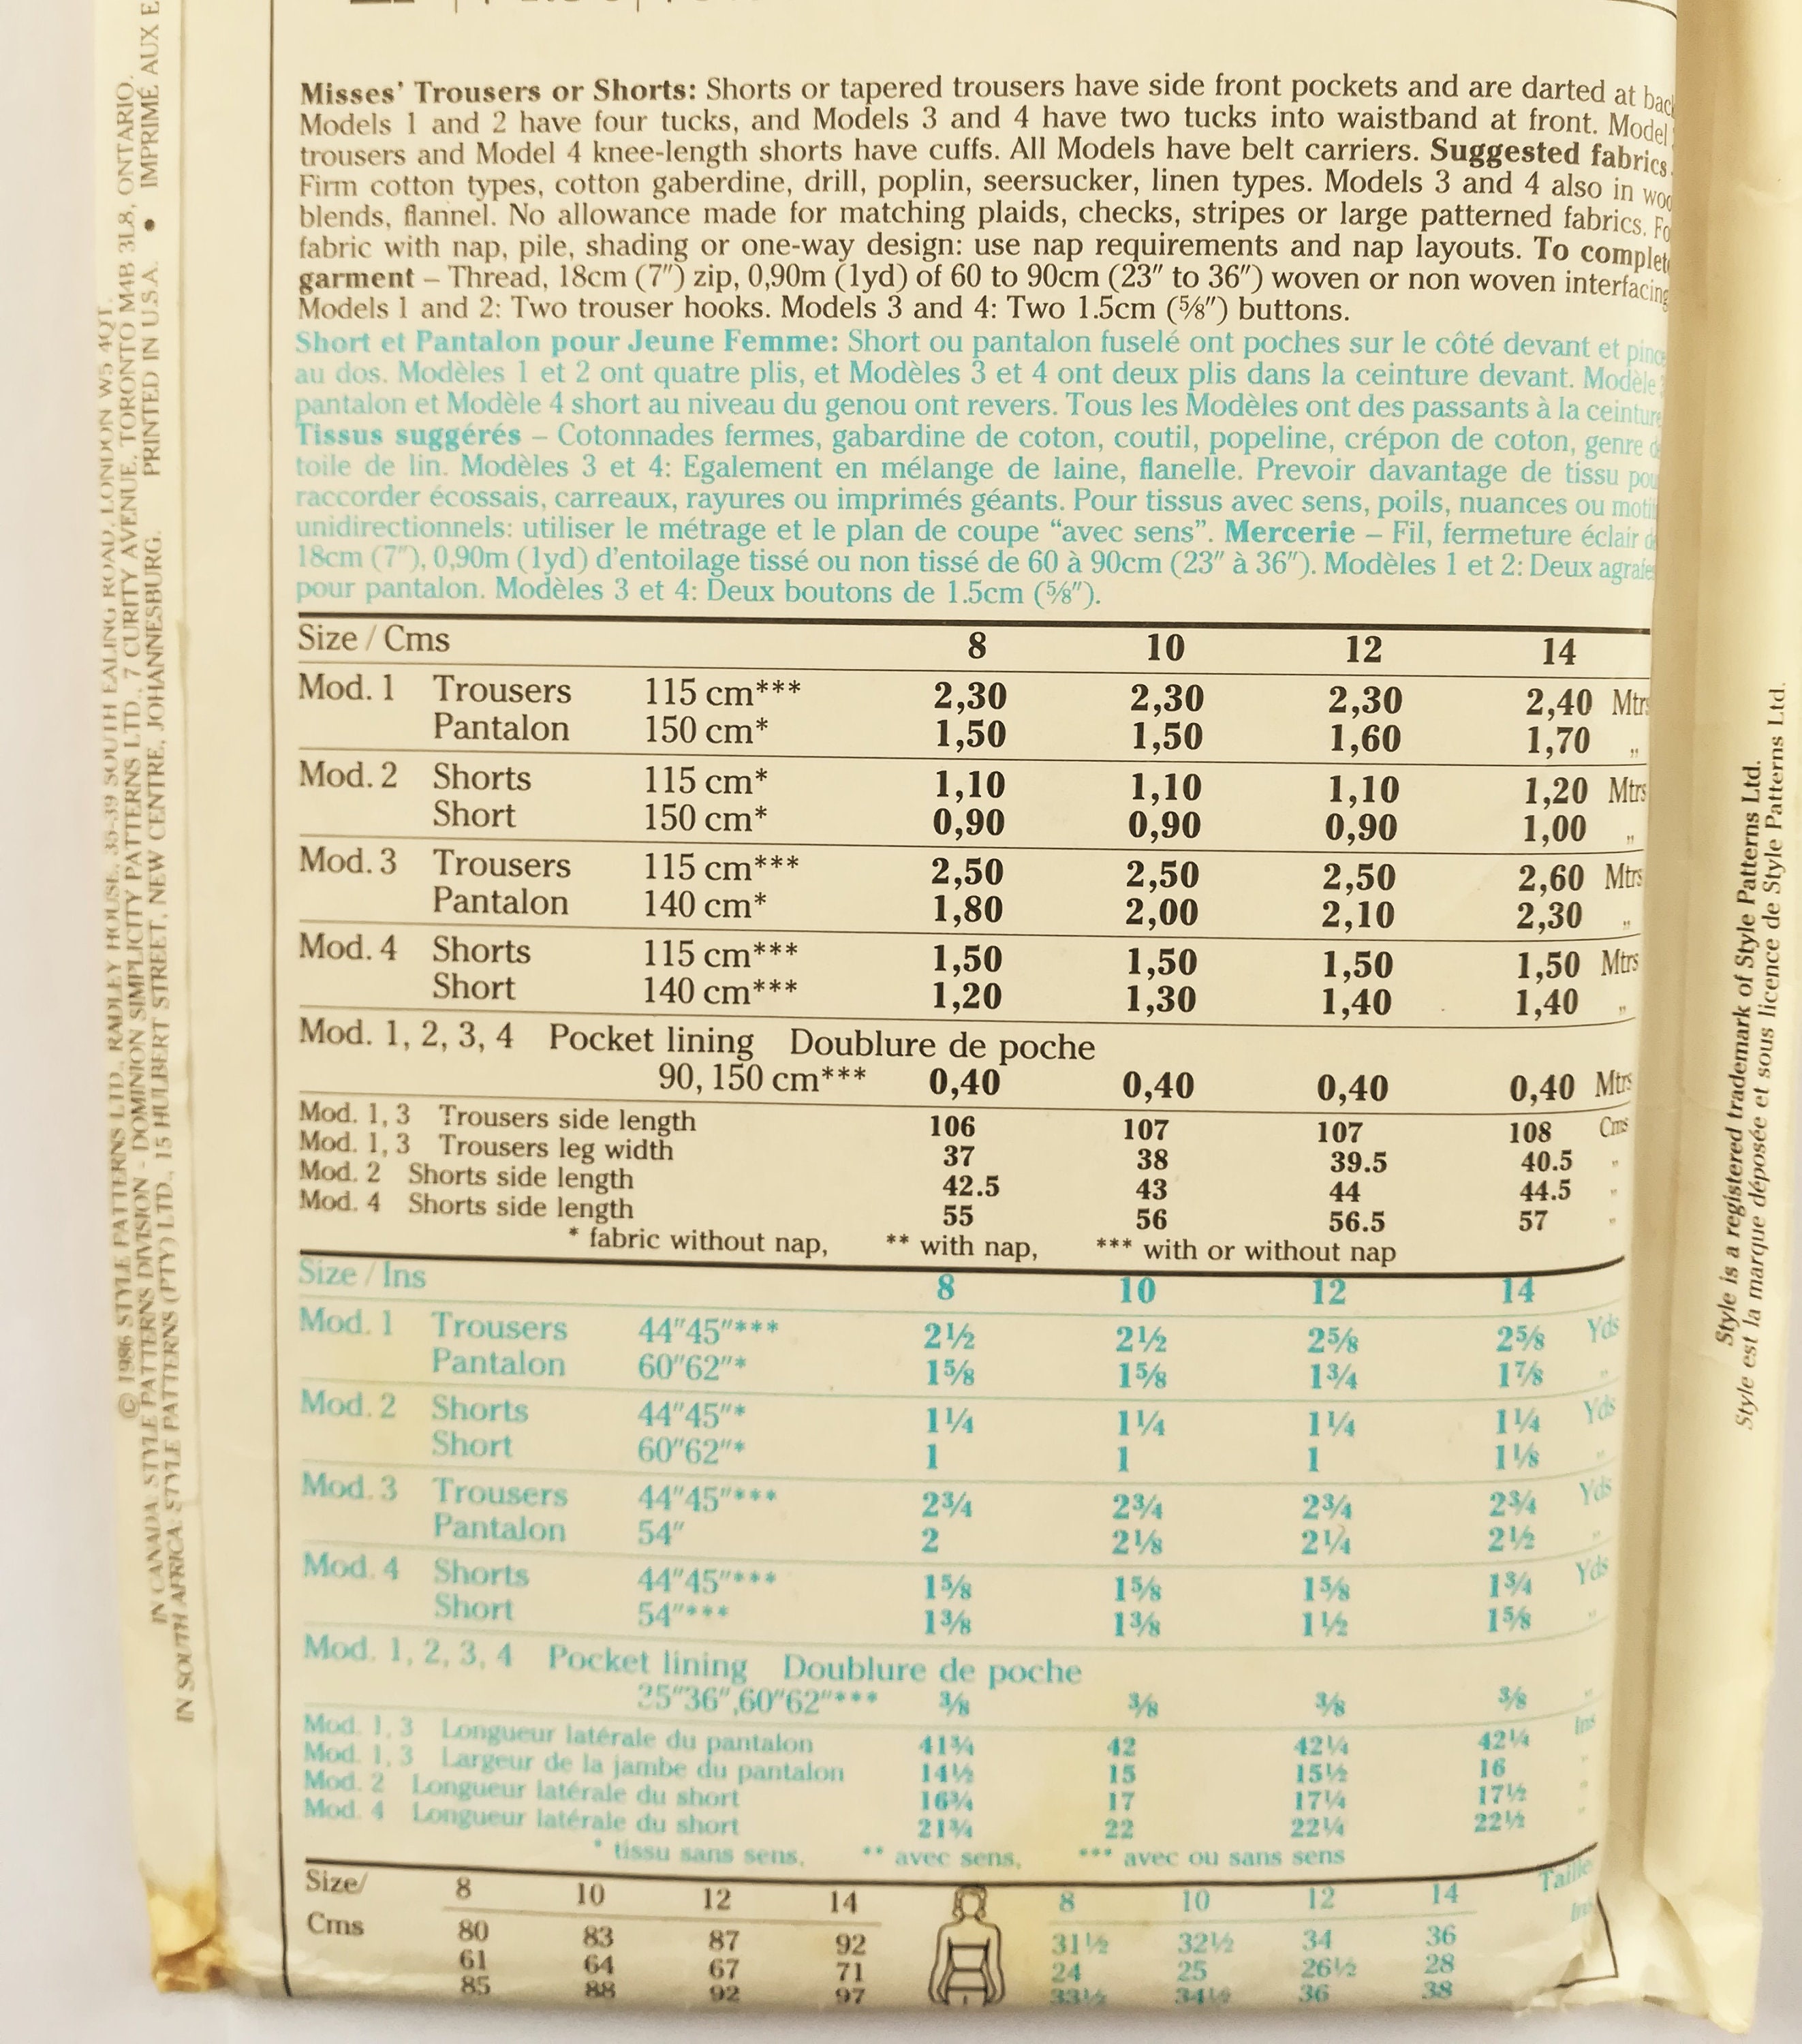 Misses' Trousers or Shorts: Shorts or tapered trousers have side front pockets and are darted at
Models 1 and 2 have four tucks, and Models 3 and 4 have two tucks into waistband at front. Model
trousers and Model 4 knee-length shorts have cuffs. All Models have belt carriers. Suggested fabrics
Firm cotton types, cotton gaberdine, drill, poplin, seersucker, linen types. Models 3 and 4 also in
blends, flannel. No allowance made for matching plaids, checks, stripes or large patterned fabrics.
fabric with nap, pile, shading or one-way design: use nap requirements and nap layouts. To
garment – Thread, 18cm (7″) zip, 0,90m (1yd) of 60 to 90cm (23″ to 36″) woven or non woven interfacing
Models 1 and 2: Two trouser hooks. Models 3 and 4: Two 1.5cm (⅝″) buttons.
Short et Pantalon pour Jeune Femme: Short ou pantalon fuselé ont poches sur le côté devant et
au dos. Modèles 1 et 2 ont quatre plis, et Modèles 3 et 4 ont deux plis dans la ceinture devant. Modèle
pantalon et Modèle 4 short au niveau du genou ont revers. Tous les Modèles ont des passants à la ceinture
Tissus suggérés – Cotonnades fermes, gabardine de coton, coutil, popeline, crépon de coton, genre
toile de lin. Modèles 3 et 4: Egalement en mélange de laine, flanelle. Prevoir davantage de tissu
raccorder écossais, carreaux, rayures ou imprimés géants. Pour tissus avec sens, poils, nuances ou
unidirectionnels: utiliser le métrage et le plan de coupe “avec sens”. Mercerie – Fil, fermeture éclair
18cm (7″), 0,90m (1yd) d'entoilage tissé ou non tissé de 60 à 90cm (23″ à 36″). Modèles 1 et 2: Deux
pour pantalon. Modèles 3 et 4: Deux boutons de 1.5cm (⅝″).
Size / Cms 8 10 12 14
Mod. 1 Trousers 115 cm*** 2,30 2,30 2,30 2,40 Mtrs
Pantalon 150 cm* 1,50 1,50 1,60 1,70 ,,
Mod. 2 Shorts 115 cm* 1,10 1,10 1,10 1,20 Mtrs
Short 150 cm* 0,90 0,90 0,90 1,00 ,,
Mod. 3 Trousers 115 cm*** 2,50 2,50 2,50 2,60 Mtrs
Pantalon 140 cm* 1,80 2,00 2,10 2,30 ,,
Mod. 4 Shorts 115 cm*** 1,50 1,50 1,50 1,50 Mtrs
Short 140 cm*** 1,20 1,30 1,40 1,40 ,,
Mod. 1, 2, 3, 4 Pocket lining Doublure de poche
90, 150 cm*** 0,40 0,40 0,40 0,40 Mtrs
Mod. 1, 3 Trousers side length 106 107 107 108 Cms
Mod. 1, 3 Trousers leg width 37 38 39.5 40.5 ,,
Mod. 2 Shorts side length 42.5 43 44 44.5 ,,
Mod. 4 Shorts side length 55 56 56.5 57 ,,
* fabric without nap, ** with nap, *** with or without nap
Size / Ins 8 10 12 14
Mod. 1 Trousers 44″45″*** 2½ 2½ 2⅝ 2⅝ Yds
Pantalon 60″62″* 1⅝ 1⅝ 1¾ 1⅞ ,,
Mod. 2 Shorts 44″45″* 1¼ 1¼ 1¼ 1¼ Yds
Short 60″62″* 1 1 1 1⅛ ,,
Mod. 3 Trousers 44″45″*** 2¾ 2¾ 2¾ 2¾ Yds
Pantalon 54″ 2 2⅛ 2¼ 2½ ,,
Mod. 4 Shorts 44″45″*** 1⅝ 1⅝ 1⅝ 1¾ Yds
Short 54″*** 1⅜ 1⅜ 1½ 1⅝ ,,
Mod. 1, 2, 3, 4 Pocket lining Doublure de poche
35″36″,60″62″*** ⅜ ⅜ ⅜ ⅜ ,,
Mod. 1, 3 Longueur latérale du pantalon 41¾ 42 42¼ 42¼ Ins
Mod. 1, 3 Largeur de la jambe du pantalon 14½ 15 15½ 16 ,,
Mod. 2 Longueur latérale du short 16¾ 17 17¼ 17½ ,,
Mod. 4 Longueur latérale du short 21¾ 22 22¼ 22½ ,,
* tissu sans sens, ** avec sens, *** avec ou sans sens
Size/ 8 10 12 14 8 10 12 14 Taille
Cms 80 83 87 92 31½ 32½ 34 36 Ins
61 64 67 71 24 25 26½ 28
85 88 92 97 33½ 34½ 36 38
© 1986 STYLE PATTERNS LTD., RADLEY HOUSE, 35-39 SOUTH EALING ROAD, LONDON W5 4QT.
IN CANADA: STYLE PATTERNS DIVISION - DOMINION SIMPLICITY PATTERNS LTD., 7 CURITY AVENUE, TORONTO M4B 3L8, ONTARIO.
IN SOUTH AFRICA: STYLE PATTERNS (PTY) LTD., 15 HULBERT STREET, NEW CENTRE, JOHANNESBURG. PRINTED IN U.S.A. • IMPRIMÉ AUX
Style is a registered trademark of Style Patterns Ltd.
Style est la marque déposée et sous licence de Style Patterns Ltd.